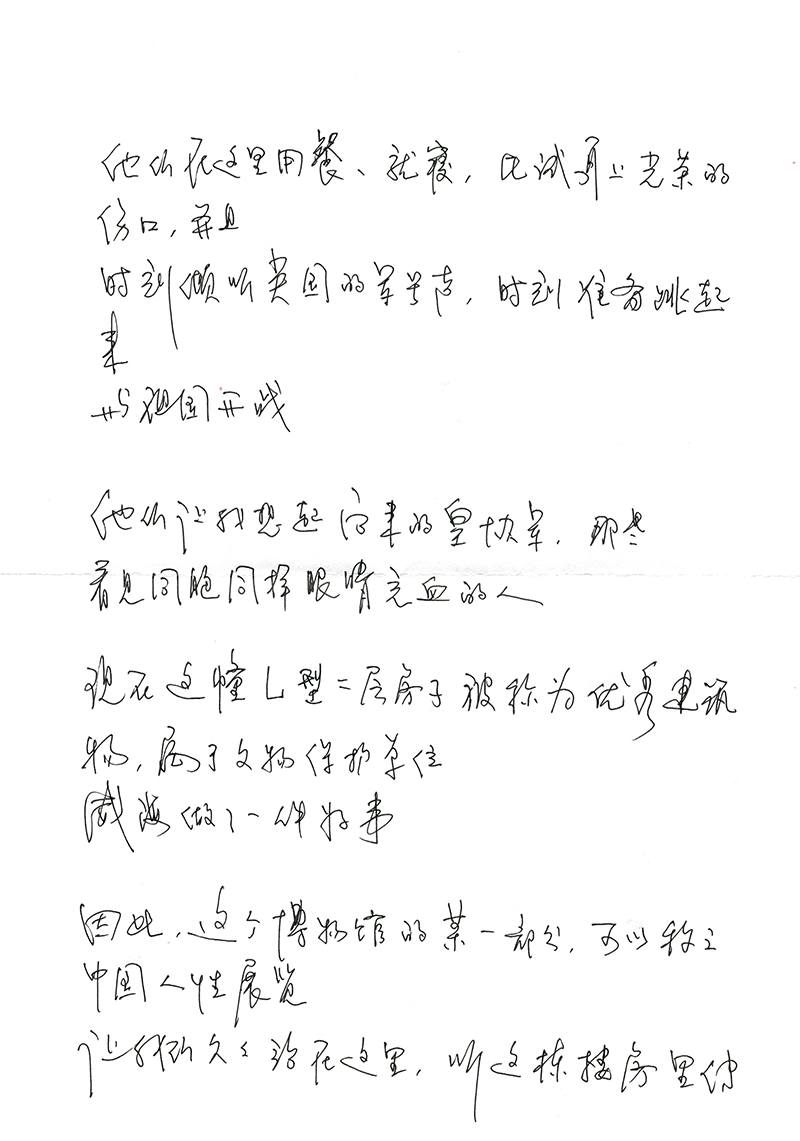 他们在这里用餐、就寝，比试身上光荣的
伤口，并且
时刻倾听英国的军号声，时刻准备跳起
来
与祖国开战
他们让我想起后来的皇协军，那些
看见同胞同样眼睛充血的人
现在这幢L型二层房子被称为优秀建筑
物，属于文物保护单位
威海做了一件好事
因此，这个博物馆的某一部分，可以称之
中国人性展览
让我们久久站在这里，听这栋楼房里传